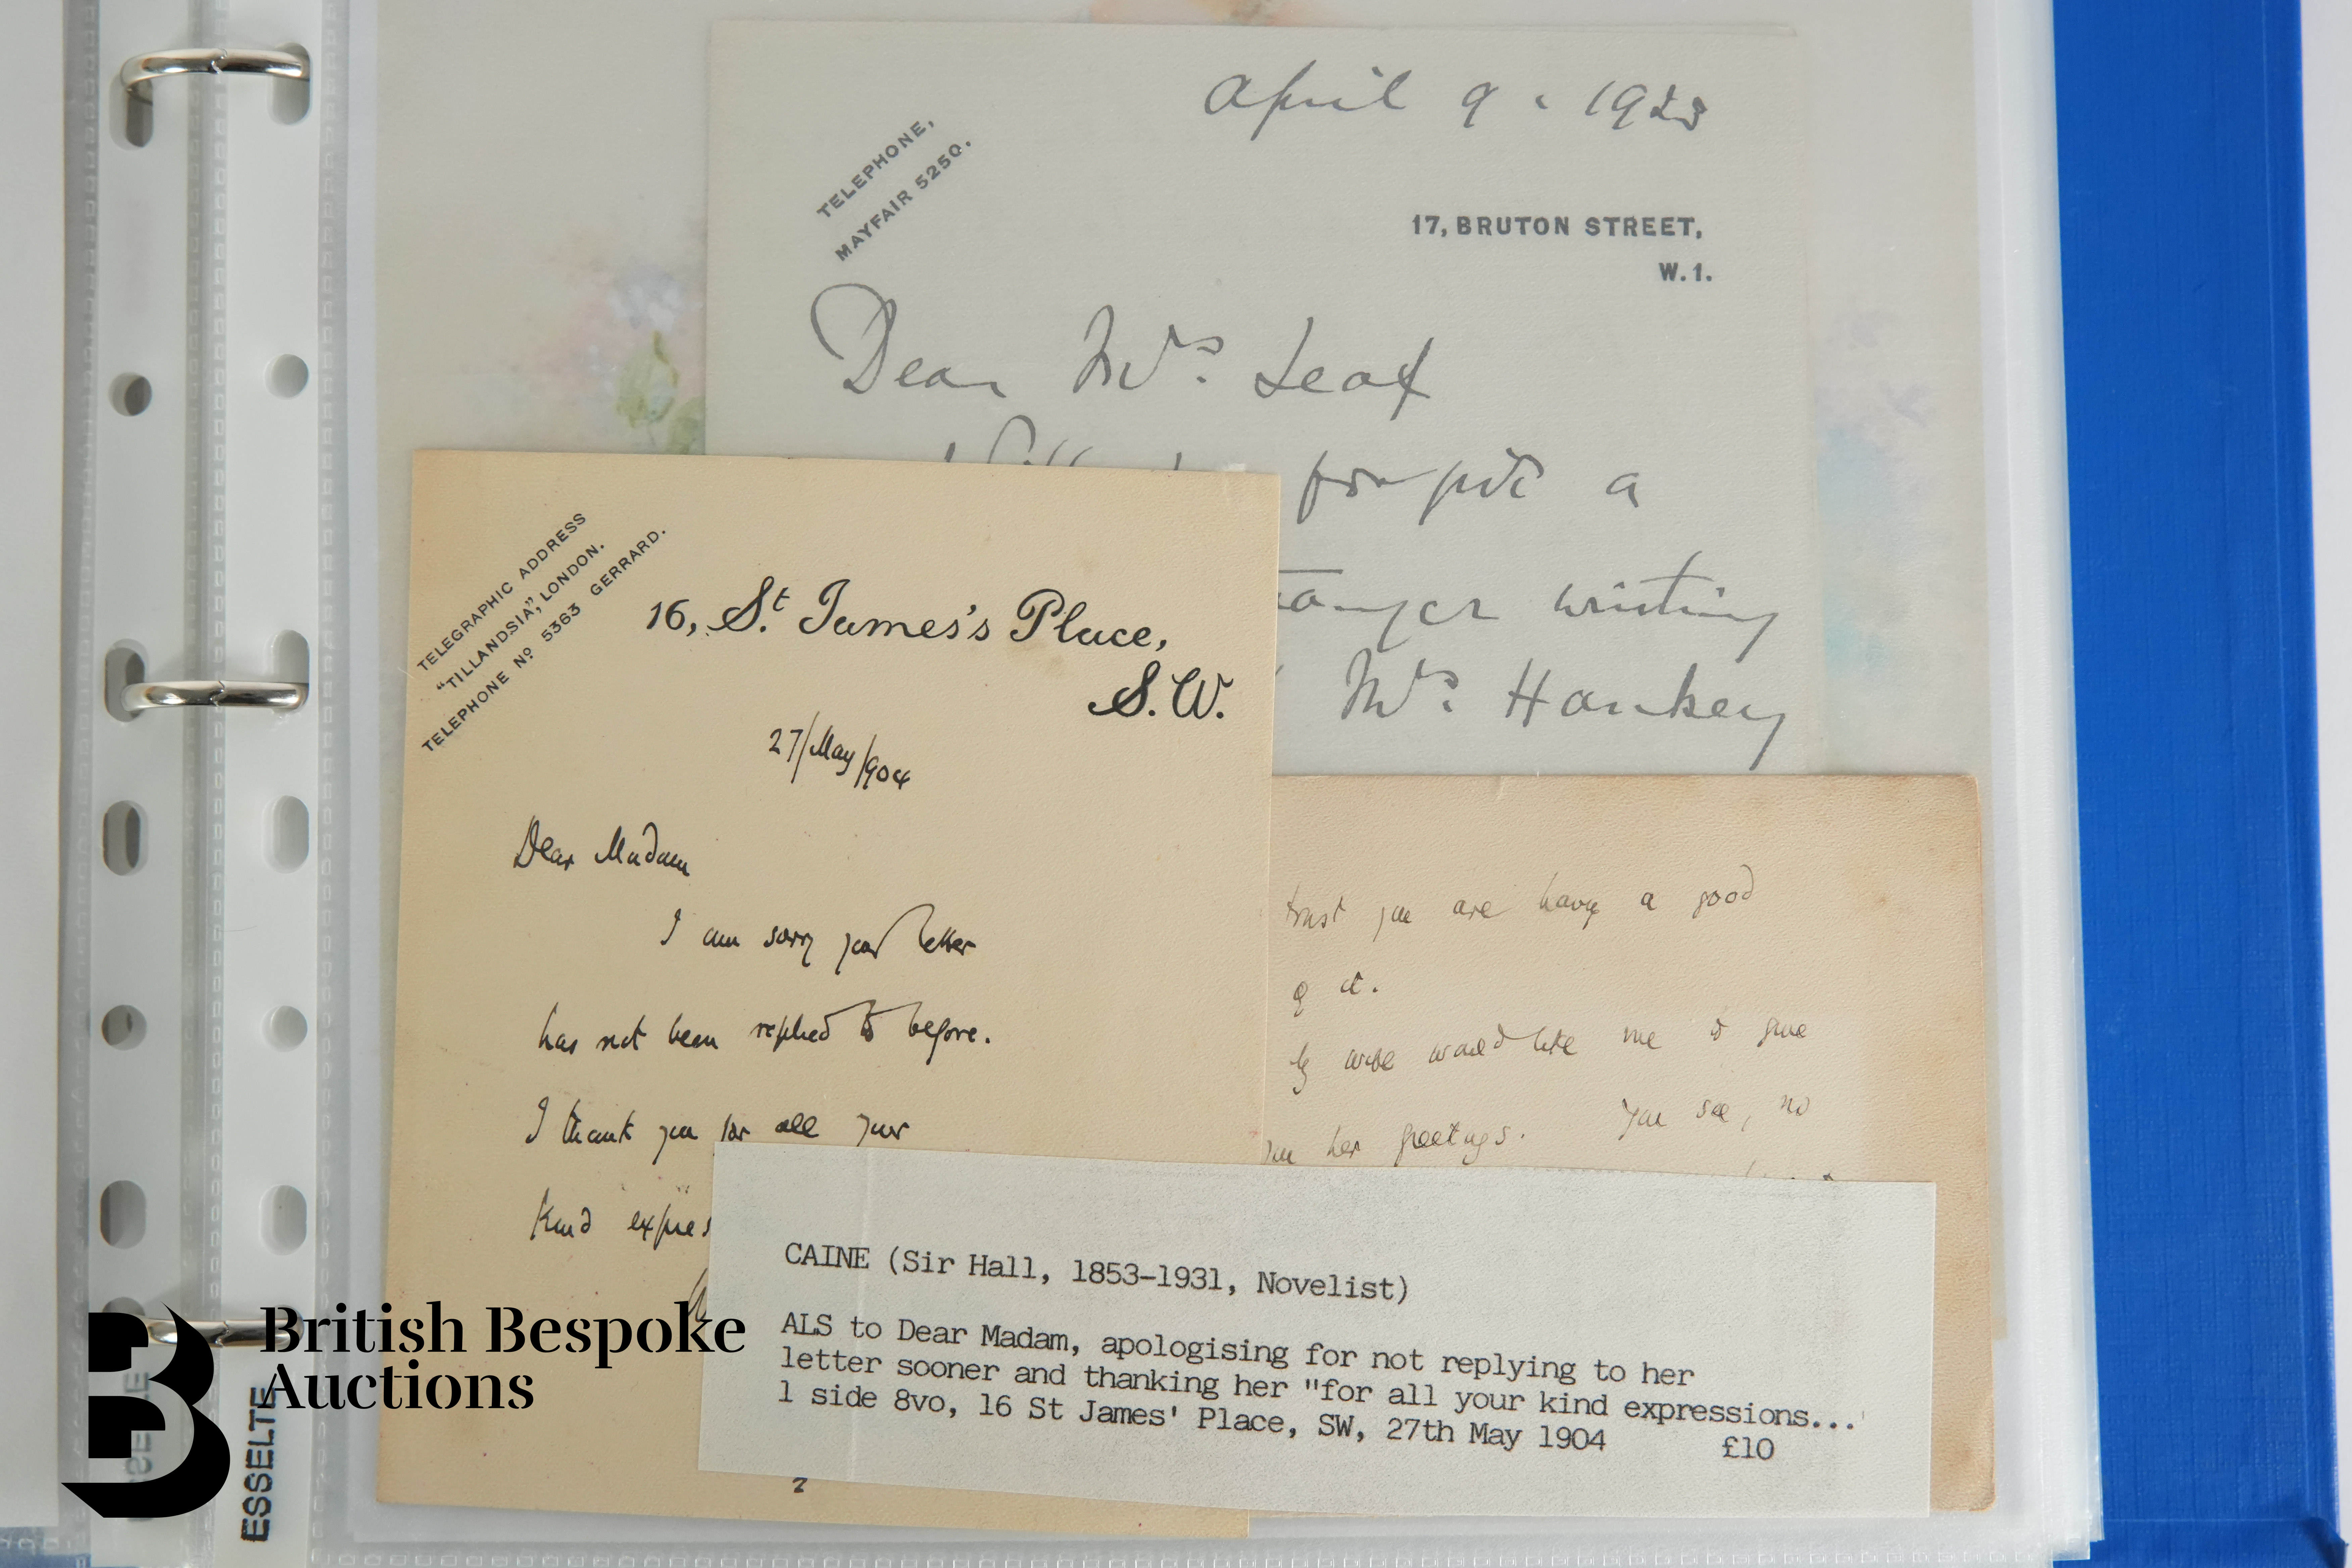 April 9. 1923
TELEPHONE,
MAYFAIR 5250.
17, BRUTON STREET,
W.1.
Dear Mrs. Leaf
for pit a
writing
Mrs. Hankey
TELEGRAPHIC ADDRESS
"TILLANDSIA", LONDON.
TELEPHONE No 5363 GERRARD.
16, St. James's Place,
S.W.
27/May/904
Dear Madam
I am sorry your letter
has not been replied to before.
I thank you for all your
kind expres
2
trust you are having a good
of it.
wife would like me to give
you her greetings. You see, no
CAINE (Sir Hall, 1853-1931, Novelist)
ALS to Dear Madam, apologising for not replying to her
letter sooner and thanking her "for all your kind expressions...'
1 side 8vo, 16 St James' Place, SW, 27th May 1904 £10
British Bespoke
Auctions
ESSELTE